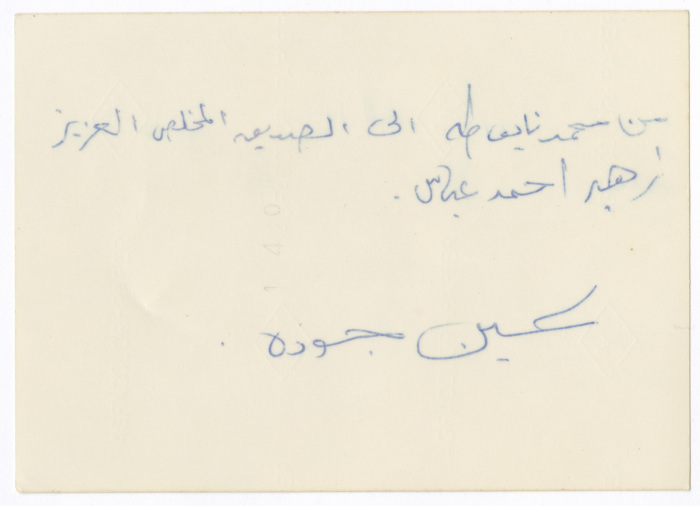 من محمد نايف طه الى الصديق المخلص العزيز
زهير احمد عباس.
حسين جوده.